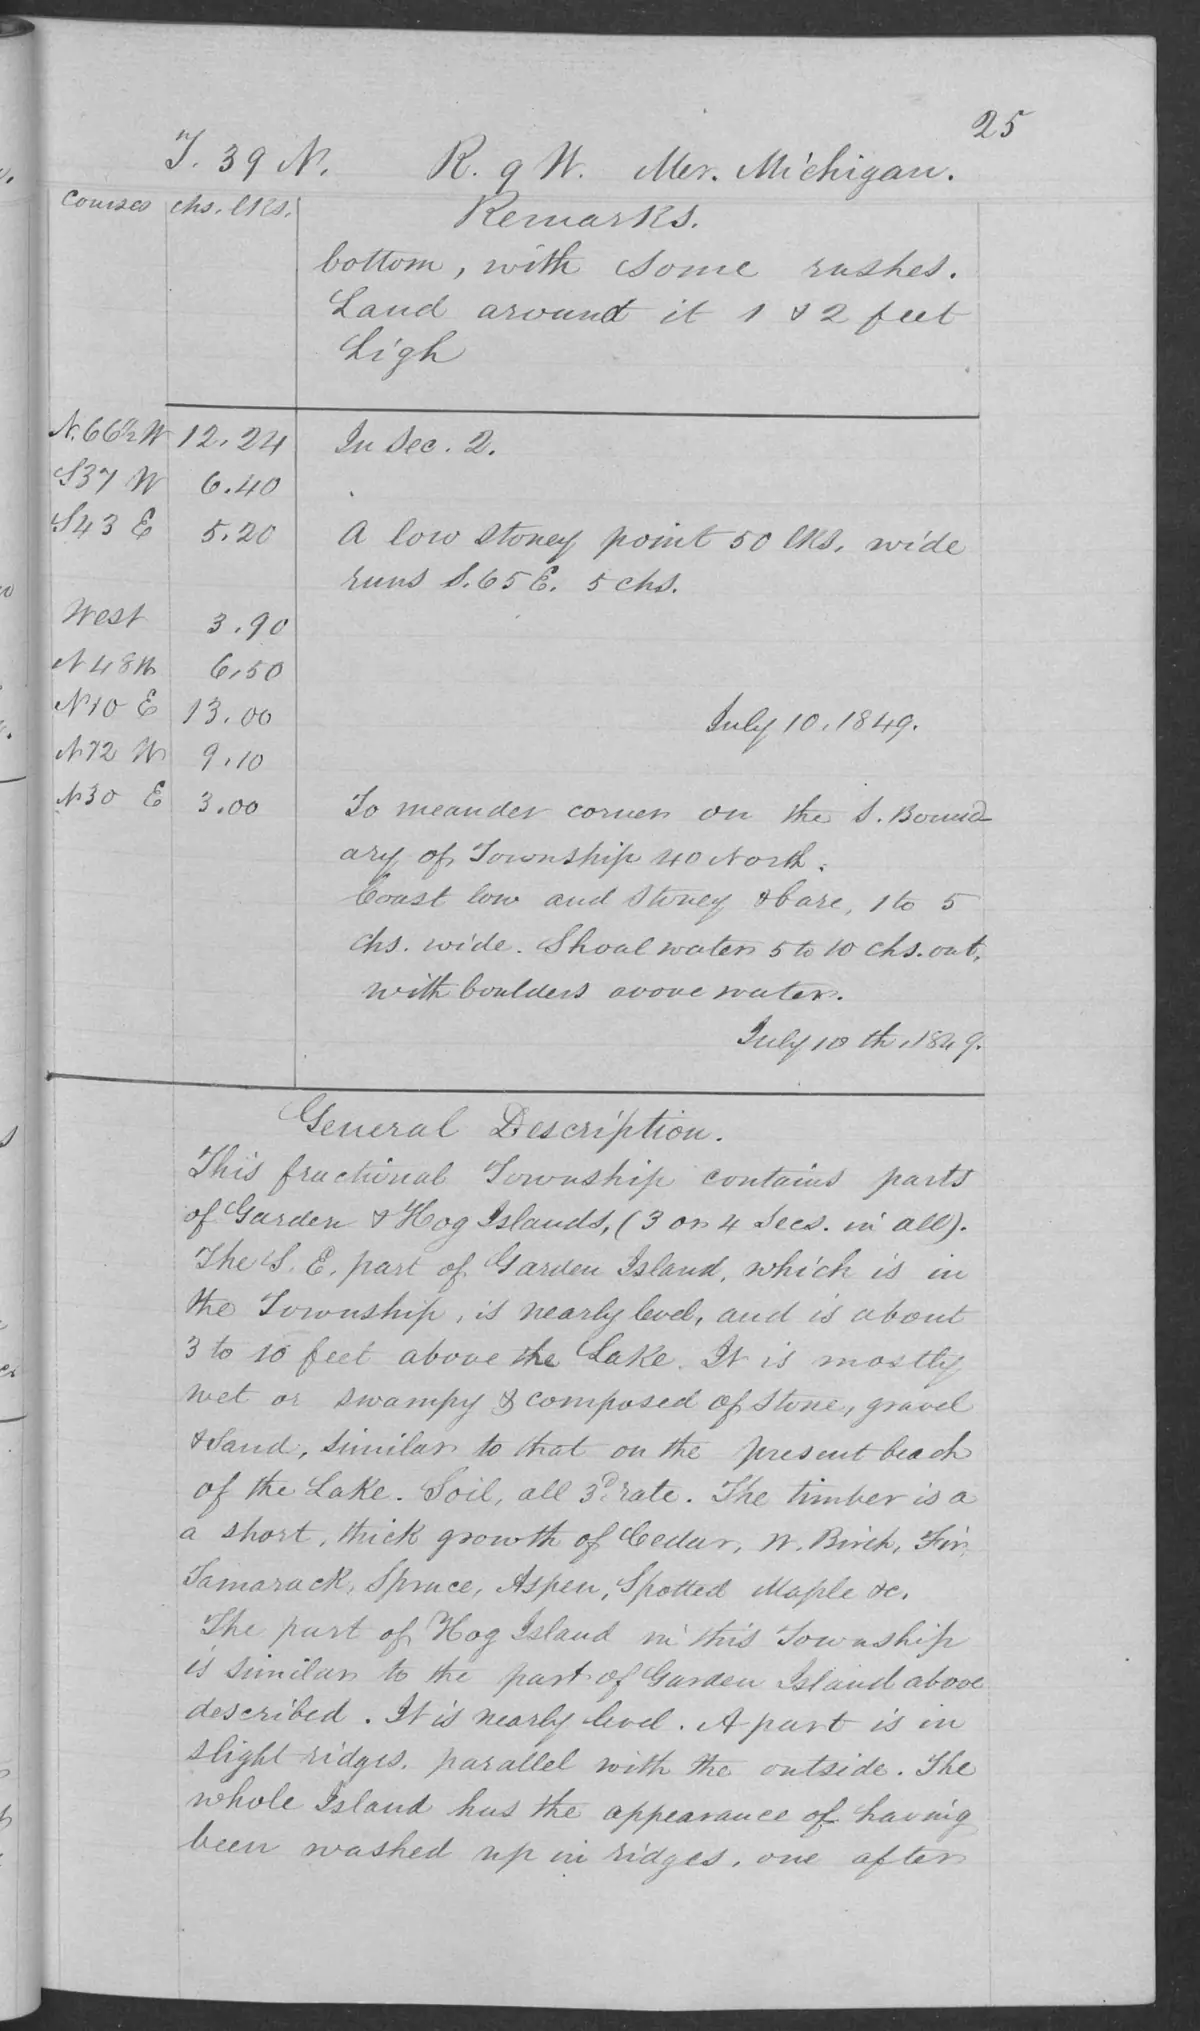 25
T. 39 N. R. 9 W. Mer. Michigan.
Courses chs. lks. Remarks.
bottom, with some rushes.
Land around it 1 & 2 feet
high
N.66½W 12.24 In Sec. 2.
S37 W 6.40
S43 E 5.20 A low stoney point 50 lks. wide
runs S.65 E. 5 chs.
West 3.90
N48W 6.50
N10 E 13.00 July 10, 1849.
N72 W 9.10
N30 E 3.00 To meander corner on the S. Bound-
ary of Township 40 North.
Coast low and stoney & bare, 1 to 5
chs. wide. Shoal water 5 to 10 chs. out,
with boulders above water.
July 10th, 1849.
General Description.
This fractional Township contains parts
of Garden & Hog Islands, (3 or 4 Secs. in all).
The S. E. part of Garden Island, which is in
the Township, is nearly level, and is about
3 to 10 feet above the Lake. It is mostly
wet or swampy & composed of stone, gravel
& sand, similar to that on the present beach
of the Lake. Soil, all 3d rate. The timber is a
a short, thick growth of Cedar, W. Birch, Fir,
Tamarack, Spruce, Aspen, Spotted Maple &c.
The part of Hog Island in this Township
is similar to the part of Garden Island above
described. It is nearly level. A part is in
slight ridges, parallel with the outside. The
whole Island has the appearance of having
been washed up in ridges, one after